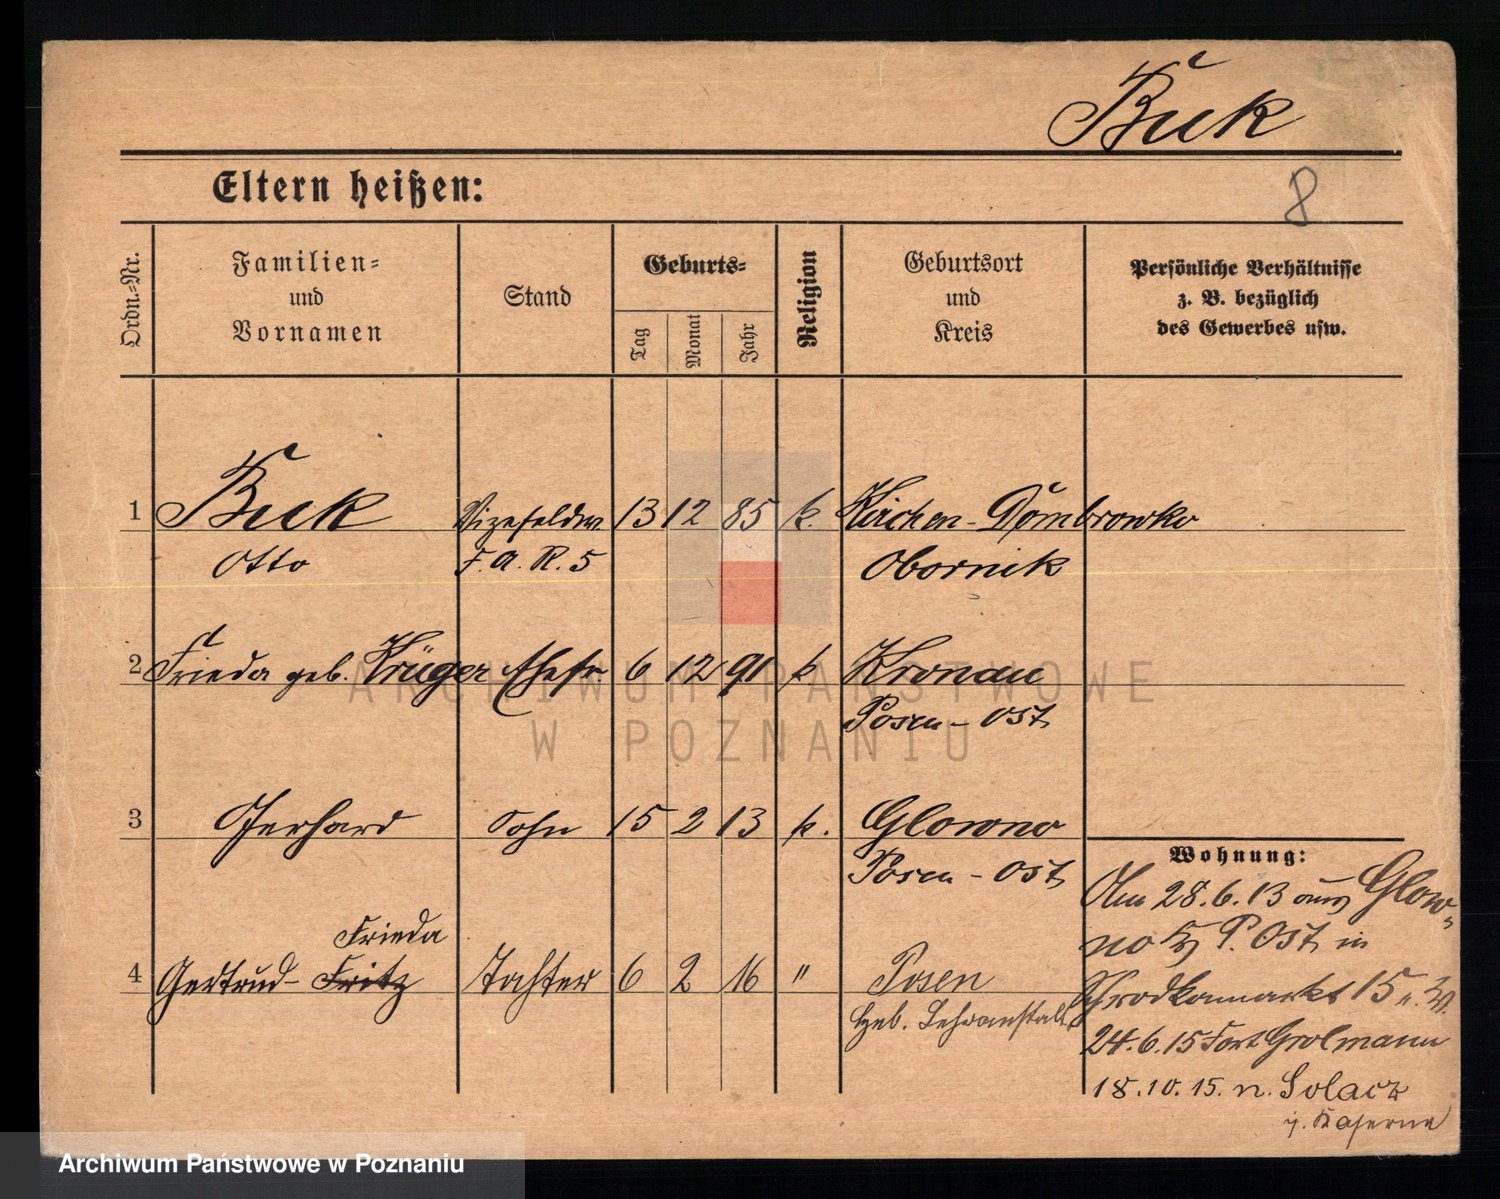 Buk
Eltern heißen:
8
Ordn.-Nr.
Familien-
und
Vornamen
Stand
Geburts-
Tag
Monat
Jahr
Religion
Geburtsort
und
Kreis
Persönliche Verhältnisse
z. B. bezüglich
des Gewerbes usw.
1 Buk Vizefeldw 13 12 85 k. Kirchen-Dombrowko
Otto F.A.R.5 Obornik
2 Frieda geb. Krüger Ehefr. 6 12 91 k Kronau
Posen-Ost
3 Gerhard Sohn 15 2 13 k. Glowno
Posen-Ost
Frieda
4 Gertrud- Fritz Tochter 6 2 16 " Posen
Heb. Lehranstalt
Wohnung:
Am 28.6.13 aus Glow-
no P. Ost in
Schrodkamarkt 15
24.6.15 Fort Grolmann
18.10.15. n. Solacz
i. Kaserne
ARCHIWUM PAŃSTWOWE
W POZNANIU
Archiwum Państwowe w Poznaniu